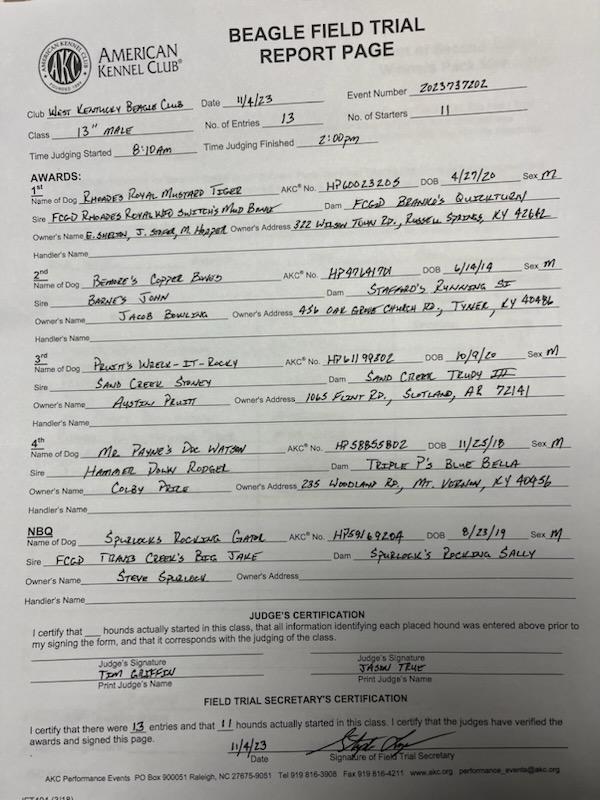 BEAGLE FIELD TRIAL
REPORT PAGE
AMERICAN KENNEL CLUB
AKC
FOUNDED 1884
AMERICAN
KENNEL CLUB®
Club WEST KENTUCKY BEAGLE CLUB Date 11/4/23 Event Number 2023737202
Class 13" MALE No. of Entries 13 No. of Starters 11
Time Judging Started 8:10am Time Judging Finished 2:00pm
AWARDS:
1st
Name of Dog RHOADES ROYAL MUSTARD TIGER AKC® No. HP60023205 DOB 4/27/20 Sex M
Sire FCGD RHOADES ROYAL SWITCH'S MUD Dam FCGD BRANKO'S QUICKTURN
Owner's Name E. SHELTON, J. M. HARPER Owner's Address 322 WILSON TOWN RD., RUSSELL SPRINGS, KY 42642
Handler's Name
2nd
Name of Dog COPPER AKC® No. DOB 6/14/19 Sex M
Sire BARNE'S JOHN Dam STAFFORD'S RUNNING SI
Owner's Name JACOB BOWLING Owner's Address 456 OAK GROVE CHURCH RD., TYNER, KY 40486
Handler's Name
3rd
Name of Dog PRUITT'S WRECK-IT-ROCKY AKC® No. HP61199802 DOB 10/9/20 Sex M
Sire SAND CREEK SYDNEY Dam SAND CREEK TRUDY III
Owner's Name AUSTIN PRUITT Owner's Address 1065 FLINT RD., SCOTLAND, AR 72141
Handler's Name
4th
Name of Dog MR PAYNE'S DOC WATSON AKC® No. HP58855802 DOB 11/25/18 Sex M
Sire HAMMER DOWN RODGER Dam TRIPLE P'S BLUE BELLA
Owner's Name COLBY PRICE Owner's Address 235 WOODLAND RD., MT. VERNON, KY 40456
Handler's Name
NBQ
Name of Dog SPURLOCKS ROCKING GATOR AKC® No. HP59169204 DOB 8/23/19 Sex M
Sire FCGD TRAVIS CREEK'S BIG JAKE Dam SPURLOCK'S ROCKING SALLY
Owner's Name STEVE SPURLOCK Owner's Address
Handler's Name
JUDGE'S CERTIFICATION
I certify that ___ hounds actually started in this class, that all information identifying each placed hound was entered above prior to
my signing the form, and that it corresponds with the judging of the class.
Judge's Signature Judge's Signature
TIM GRIFFIN JASON TRUE
Print Judge's Name Print Judge's Name
FIELD TRIAL SECRETARY'S CERTIFICATION
I certify that there were 13 entries and that 11 hounds actually started in this class. I certify that the judges have verified the
awards and signed this page.
11/4/23
Date Signature of Field Trial Secretary
AKC Performance Events PO Box 900051 Raleigh, NC 27675-9051 Tel 919 816-3908 Fax 919 816-4211 www.akc.org performance_events@akc.org